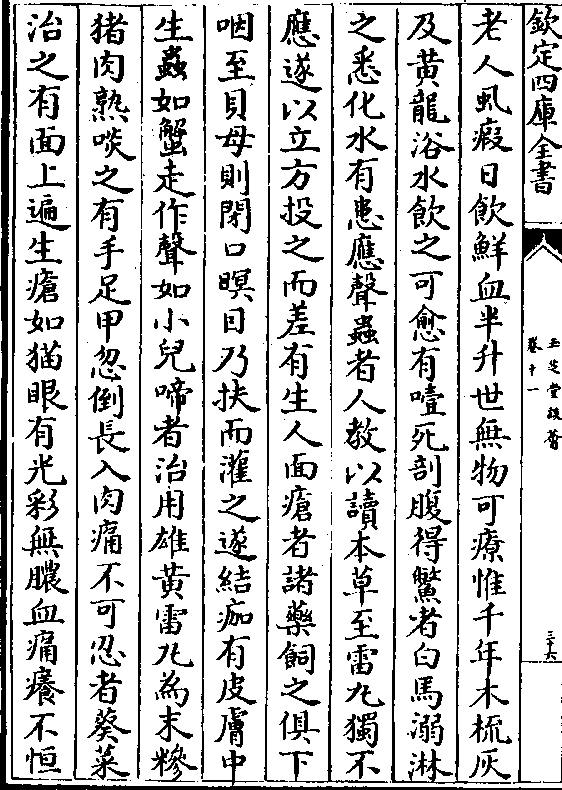 欽定四庫全書
玉芝堂談薈
卷十一
三十六
老人虱瘕日飲鮮血半升世無物可療惟千年木梳灰
及黄龍浴水飲之可愈有噎死剖腹得鱉者白馬溺淋
之悉化水有患應聲蟲者人教以讀本草至雷丸獨不
應遂以立方投之而差有生人面瘡者諸藥飼之俱下
咽至貝母則閉口瞑目乃扶而灌之遂結痂有皮膚中
生蟲如蟹走作聲如小兒啼者治用雄黄雷丸為末糝
猪肉熟啖之有手足甲忽倒長入肉痛不可忍者葵菜
治之有面上遍生瘡如猫眼有光彩無膿血痛癢不恒